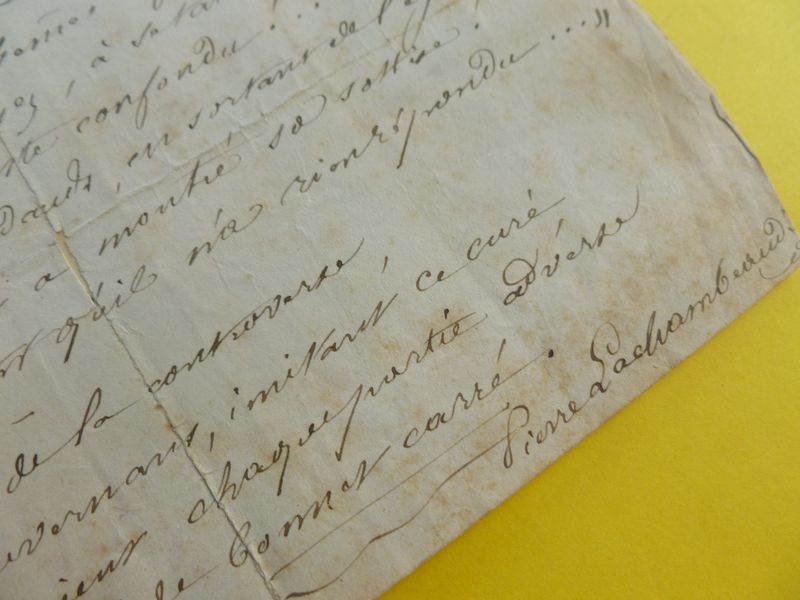 , à se ta
confondu...
en sortant de l'é
a montré sa sottise.
qu'il n'a rien répondu..."
de la controverse,
imitant ce curé
chaque partie adverse
de bonnet carré.
Pierre Lachambeaudie